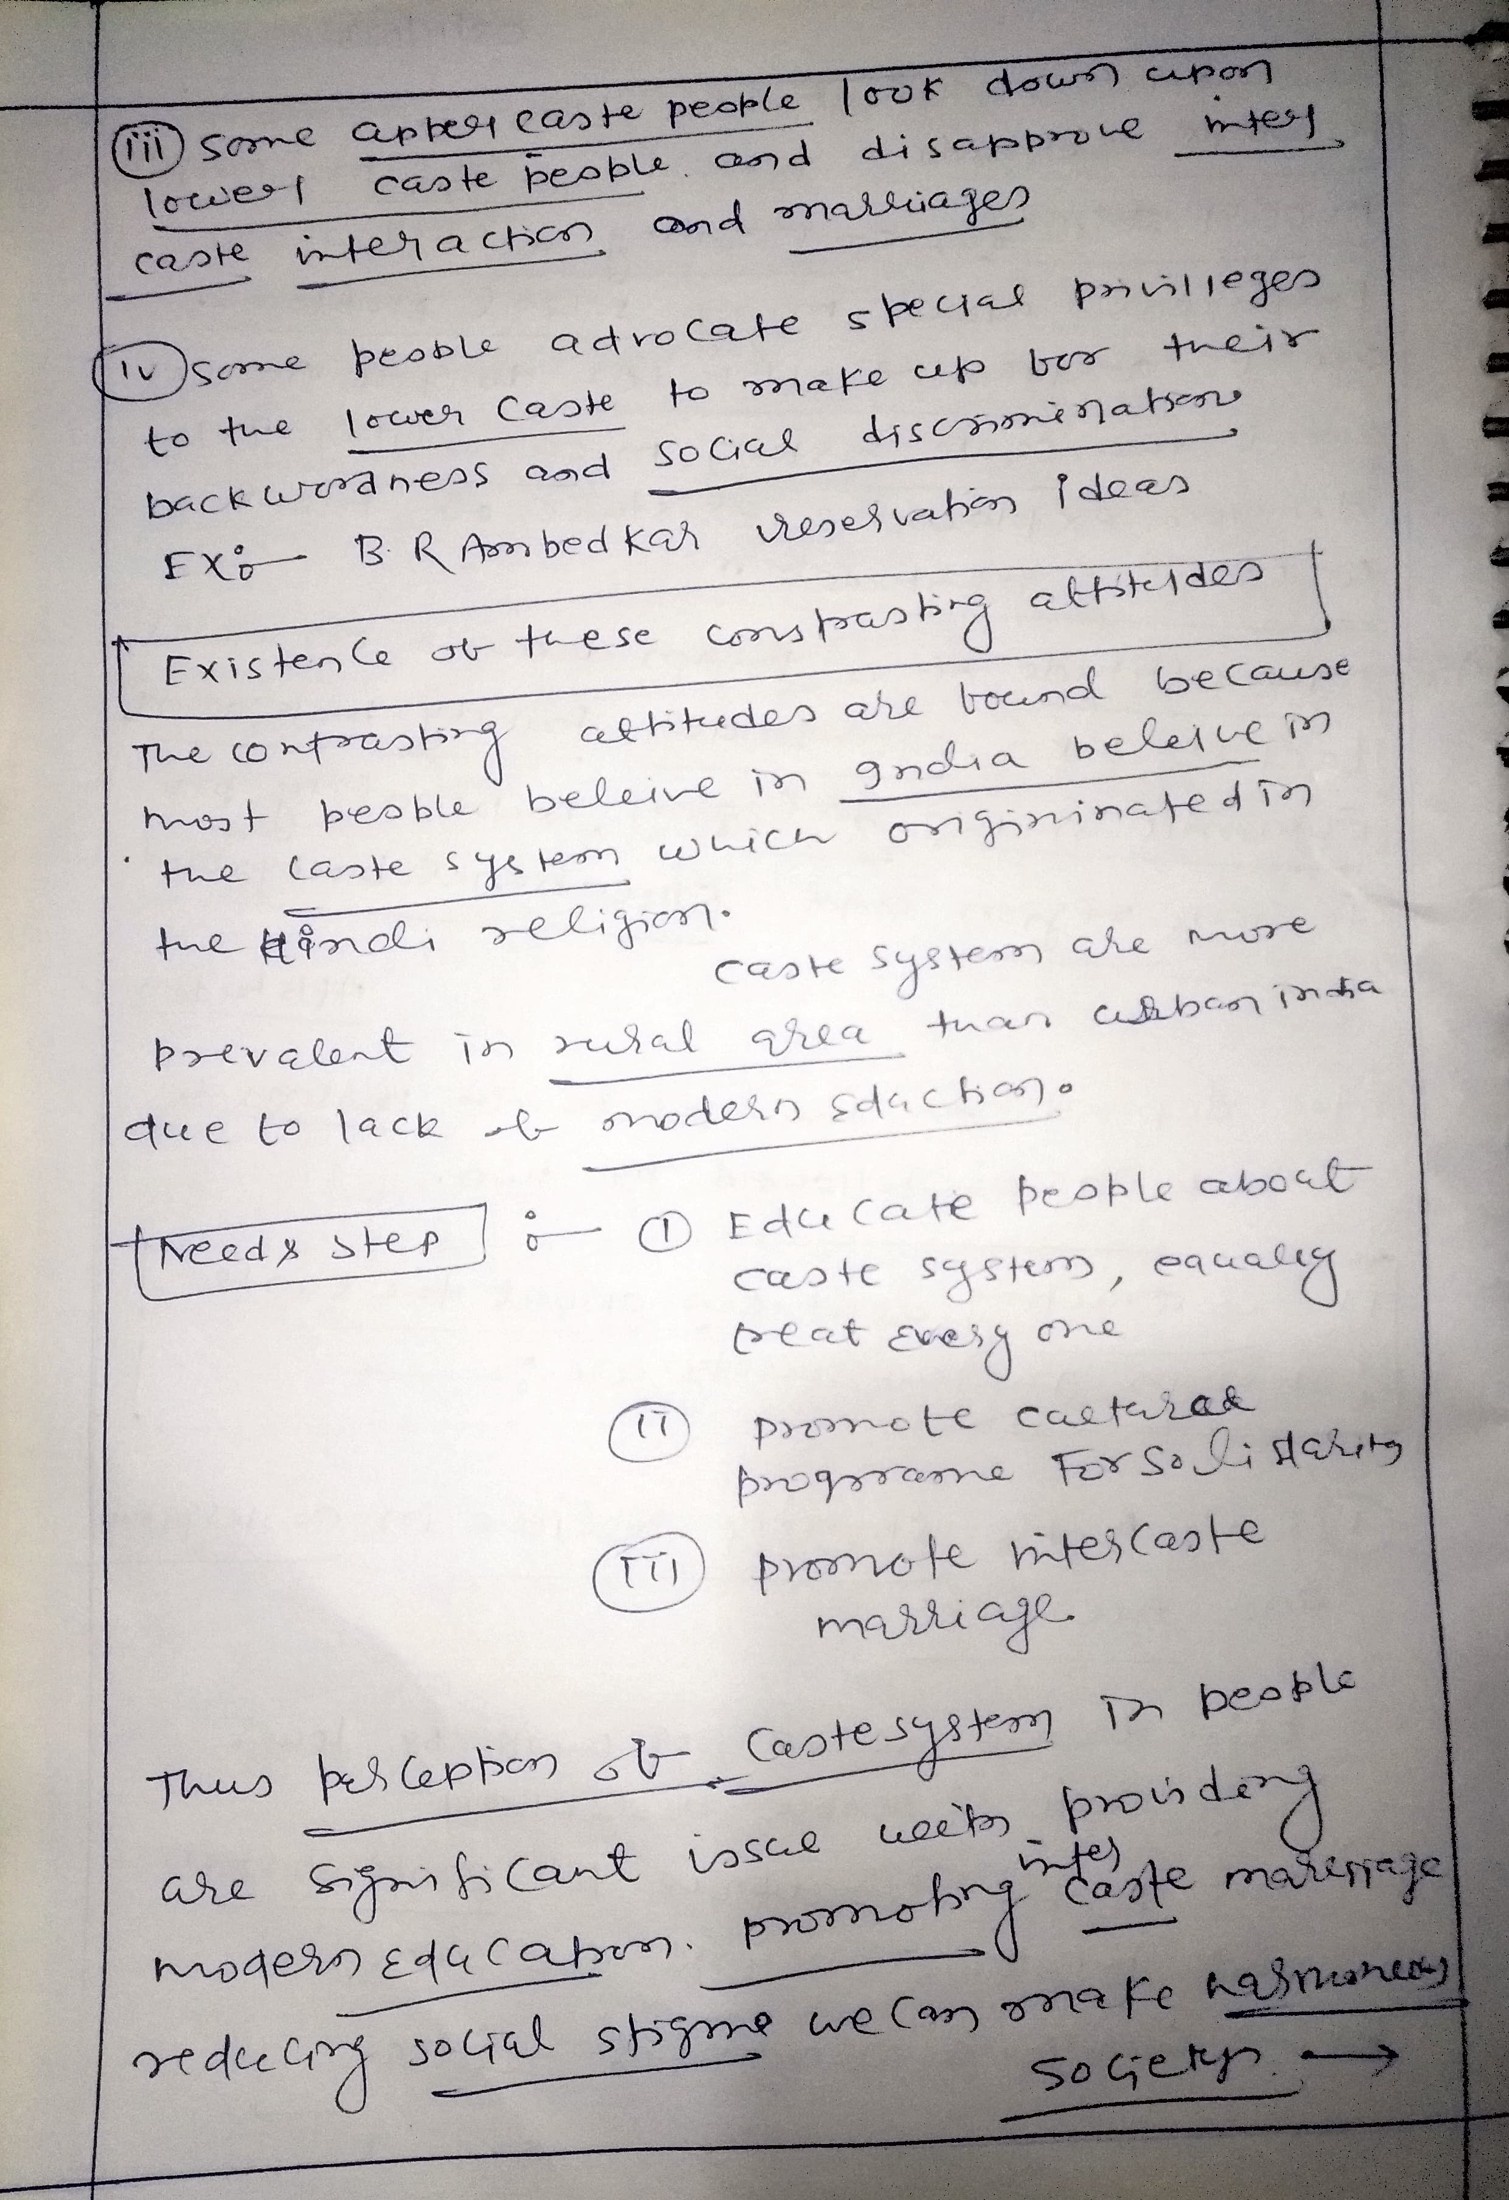 (iii) some upper caste people look down upon
lower caste people and disapprove inter
caste interaction and marriages
(iv) some people advocate special privilleges
to the lower caste to make up for their
backwordness and social discrimination
EX:- B.R Ambedkar reservation ideas
Existence of these constrasting attitudes
The contrasting attitudes are found because
most people beleive in India beleive in
the caste system which origininated in
the Hindi religion.
caste system are more
prevalent in rural area than urban india
due to lack of modern Eduction.
Needs step :- (I) Educate people about
caste system, equaly
treat every one
(II) promote cultural
programe For Solidarity
(III) promote intercaste
marriage.
Thus perception of caste system in people
are significant issue with providing
modern Education. promoting inter caste marriage
reducing social stigma we can make harmoneous
society. →